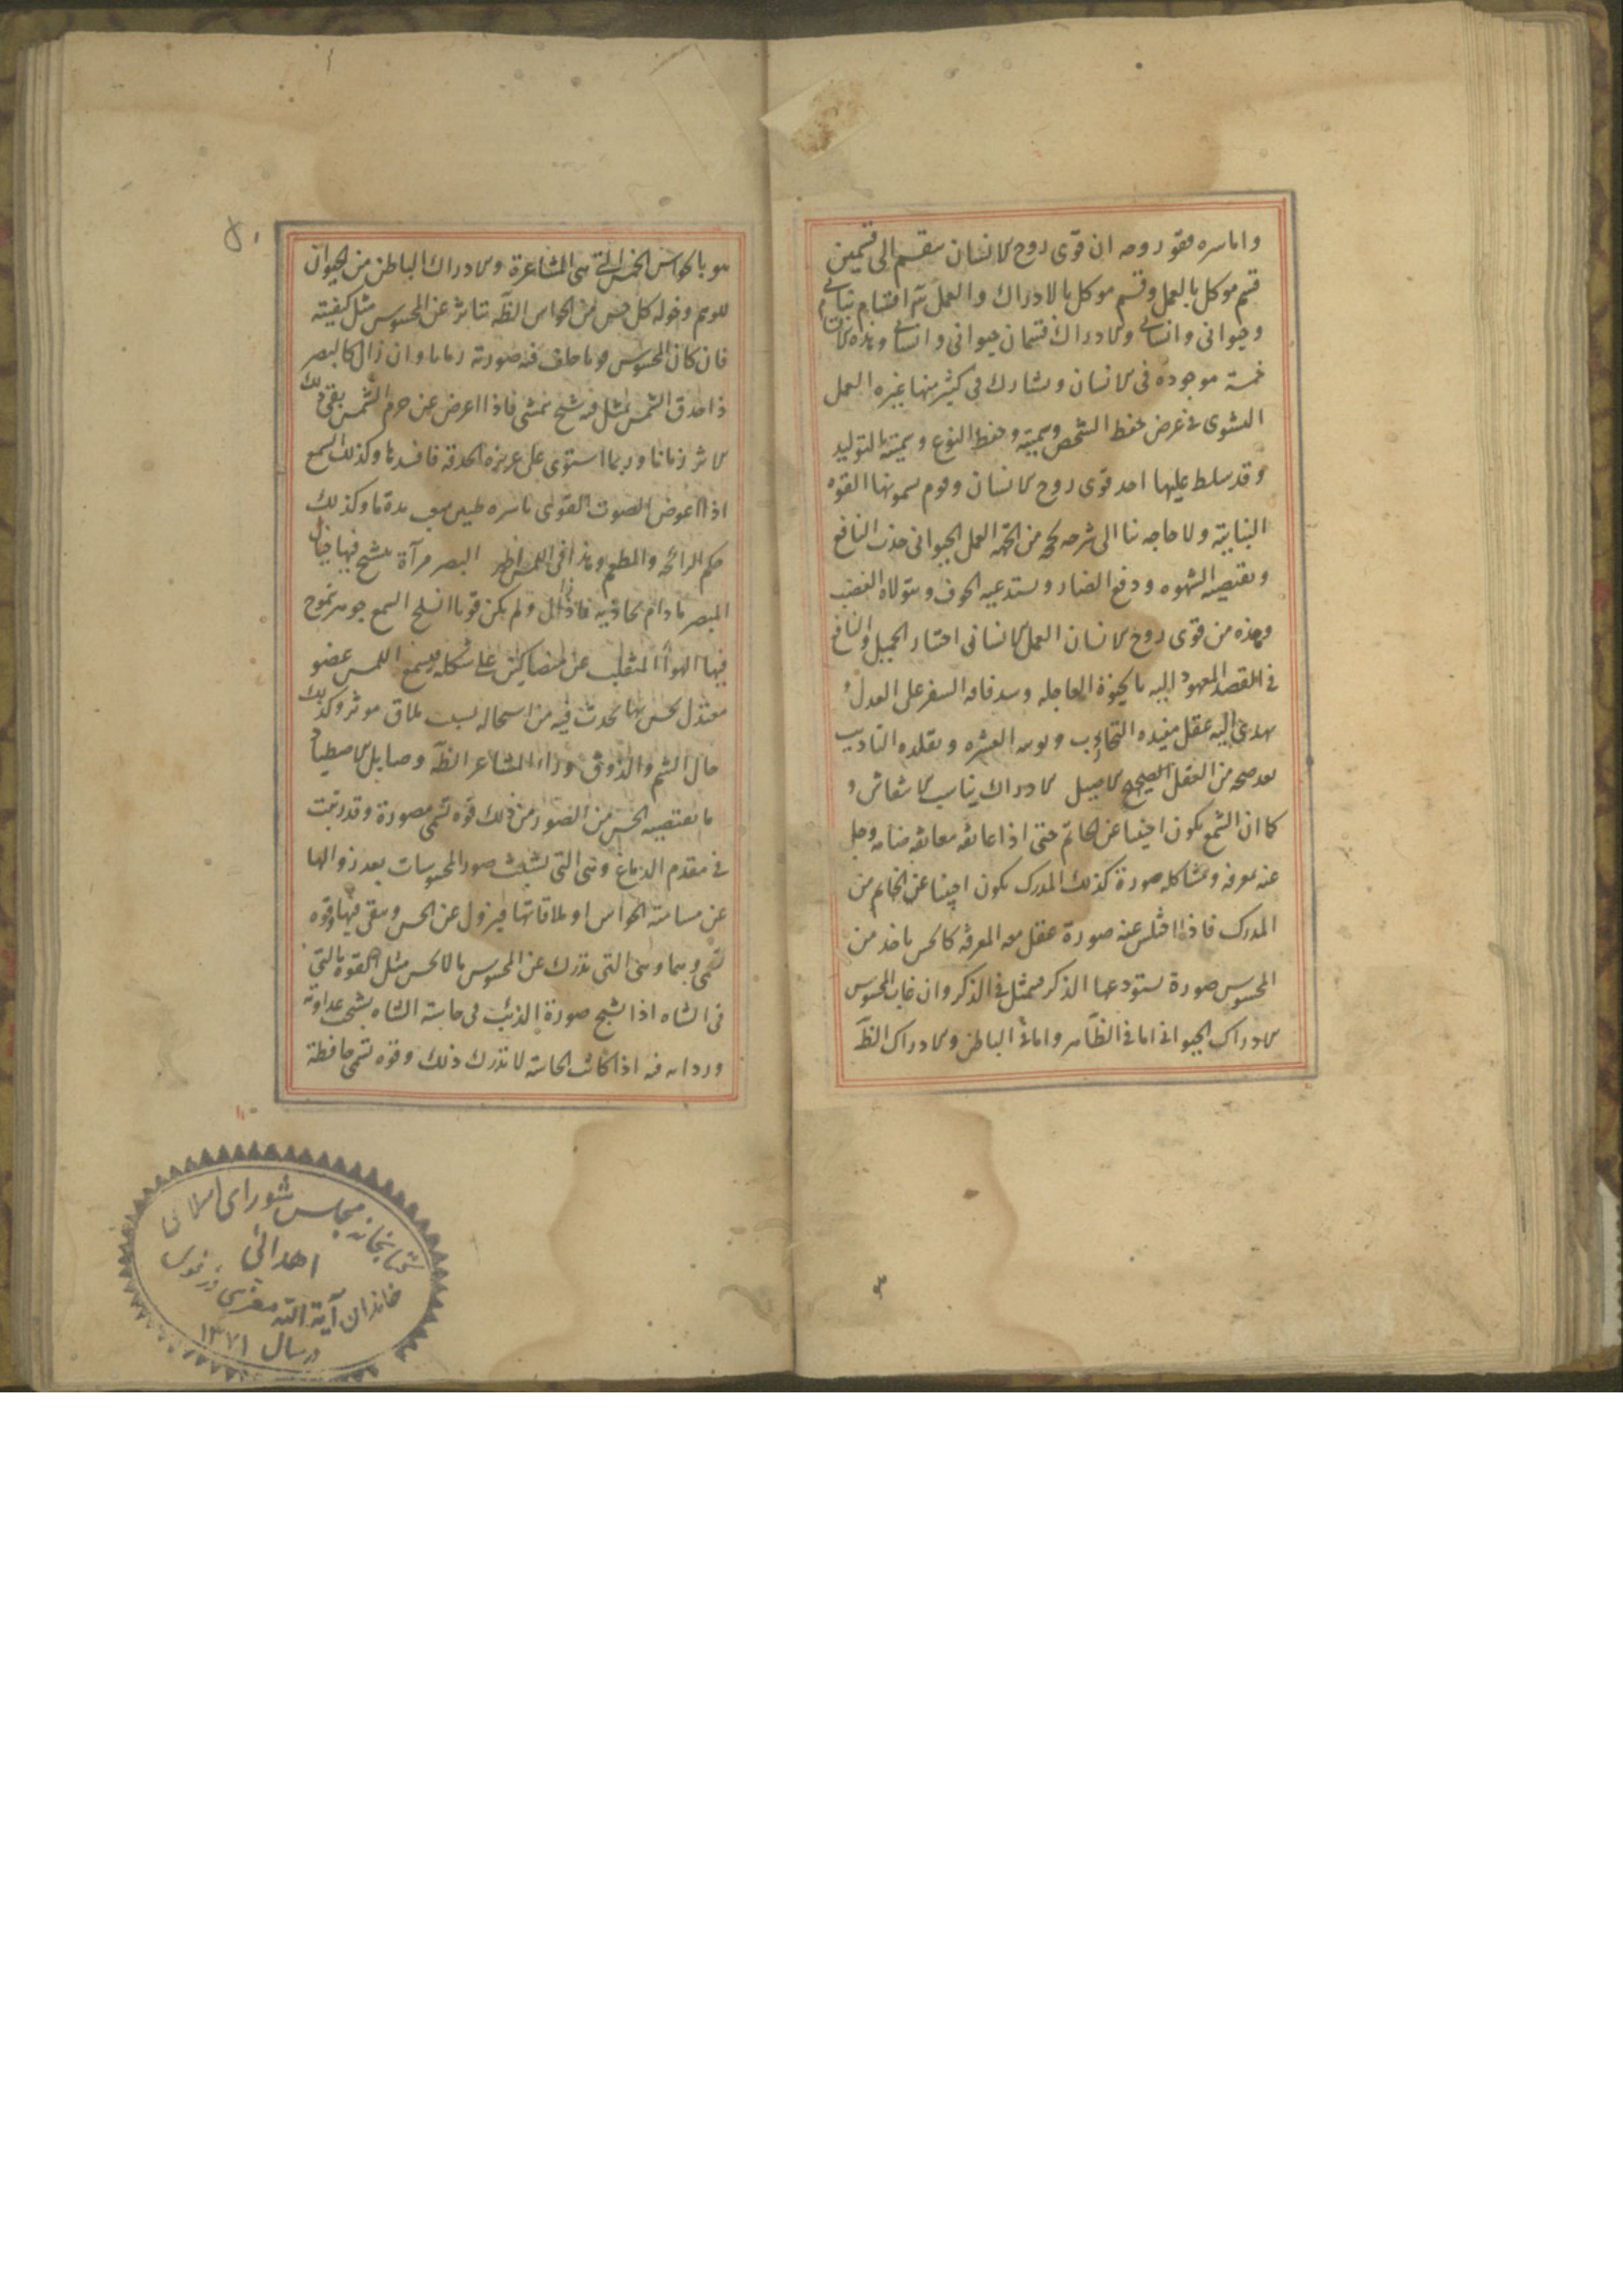 واما سره فقود روحه ان قوى روح الانسان ينقسم الى قسمين
قسم موكل بالعمل وقسم موكل بالادراك والعمل ثلثة اقسام نباتى
وحيوانى وانسانى والادراك قسمان حيوانى وانسانى وهذه الاقسام
خمسة موجوده فى الانسان ويشارك فى كثير منها غيره العمل
النشوى فى غرض حفظ الشخص وتنميته وحفظ النوع وتنميته بالتوليد
وقد سلط عليها احد قوى روح الانسان وقوم يسمونها القوه
النباتية ولا حاجه بنا الى شرحه العمل الحيوانى جذب النافع
ويقتضيه الشهوه ودفع الضار ويستدعيه الخوف ويتولاه الغضب
وهذه من قوى روح الانسان العمل الانسانى اختيار الجميل والنافع
فى المقصد المعبود اليه بالحيوة العاجله وسد فاقه السفه على العدل و
يهدى اليه عقل يفيده التجارب ويوتيه العشره ويقلده التاديب
بعد صحه من العقل الصحيح الاصيل الادراك يناسب الانتقاش و
كما ان الشمع يكون اجنبيا عن الخاتم حتى اذا عانقه معانقه ضامه رحل
عنه بمعرفه ومشاكله صورة كذلك المدرك يكون اجنبيا عن الخاتم من
المدرك فاذا اختلس عنه صورة عقل معه المعرفه كالحس ياخذ من
المحسوس صورة يستودعها الذكر فيتمثل فى الذكر وان غاب المحسوس
الادراك الحيوانى اما فى الظاهر واما فى الباطن والادراك الظ
هو بالحواس الخمس التى هى المشاعرة والادراك الباطن من الحيوان
للوهم وخوله كل حس من الحواس الظه يتاثر عن المحسوس مثل كيفيته
فان كان المحسوس قويا خلف فيه صورته زمانا وان زال كالبصر
اذا حدق الشمس تمثل فيه شبح الشمس فاذا اعرض عن جرم الشمس بقى ذلك
الاثر زمانا وربما استولى على غريزه الحدقه فافسدها وكذلك السمع
اذا اعرض الصوت القوى باشره طنين متعب مدة ما وكذلك
حكم الرائحه والمطعم وهذا فى اللمس اظهر البصر مرآة يتشبح فيها خيال
المبصر مادام يحاذيه فاذا زال ولم يكن قويا انسلخ السمع جوبه يتموج
فيها الهواء المنقلب عن متصاكين على شكله فيسمع اللمس عضو
معتدل يحس بما يحدث فيه من استحاله بسبب ملاق موثر وكذلك
حال الشم والذوق وراء المشاعر الظه وحبايل لاصطياد
ما يقتضيه الحس من الصور من ذلك قوه تسمى مصورة وقد رتبت
فى مقدم الدماغ وهى التى تستثبت صور المحسوسات بعد زوالها
عن مسامته الحواس او ملاقاتها فيزول عن الحس ويبقى فيها وقوه
تسمى وهما وهى التى تدرك عن المحسوس ما لا يحس مثل القوه التى
فى الشاه اذا تشبح صورة الذئب فى حاسة الشاه تشبح عداوته
وردائه فيه اذا كانت الحاسة لا تدرك ذلك وقوه تسمى حافظة
كتابخانه مجلس شوراى اسلامى
اهدائى
خاندان آية الله
در سال ۱۳۷۱